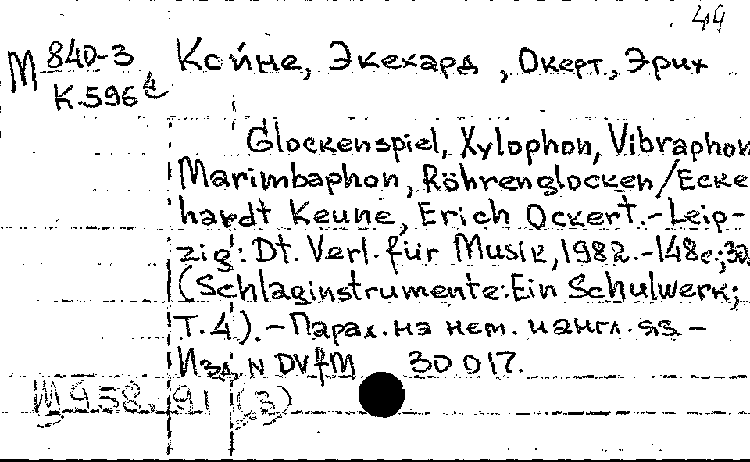 49
М 840-3 Койне, Экехард, Окерт, Эрих
К.596 4
Glockenspiel, Xylophon, Vibraphon
Marimbaphon, Röhrenglocken/Ecke
hardt Keune, Erich Ockert.-Leip-
zig: Dt. Verl. für Musik, 1982.-148с.; 30
(Schlaginstrumente: Ein Schulwerk;
Т.4).-Парал. на нем. и англ. яз.-
Изд. N DVfM 30 017.
Ш 958. 91 (3)